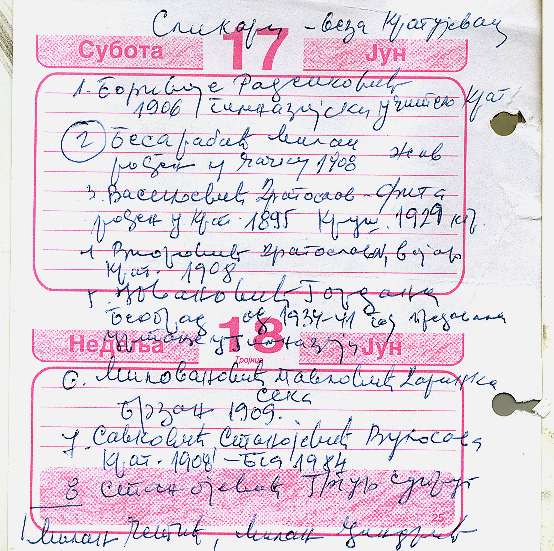 Сликари – веза Крагујевац
Субота 17 Јун
1. Боривоје Раденковић
1906 гимназијски учитељ Краг
2 Бесарабић Милан
рођен у Чачку 1908 жив
3. Василјевић Братослав – Фита
рођен у Краг. 1895 Круш. 1929
4. Братослав, вајар
Краг. 1908
5. Јовановић Гордана
Београд од 1934-41 год предавала
цртање у Гимназији
Недеља 18 Јун
Тројице
6. Миловановић Павловић Даринка
сека
Брзан 1909.
7. Савковић Станојевић Вукосава
Краг. 1908 – Бгд 1984
8 Станојевић
25
Милан, Милан